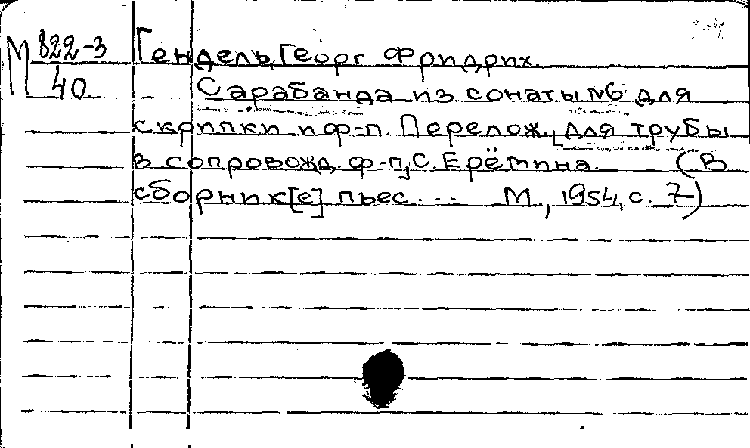 М 822-3
40
Гендель, Георг Фридрих.
Сарабанда из сонаты №6 для
скрипки и ф-п. Перелож. для трубы
в сопровожд. ф-п. С. Ерёмина. (В
сборник[е] пьес ... М., 1954, с. 7)